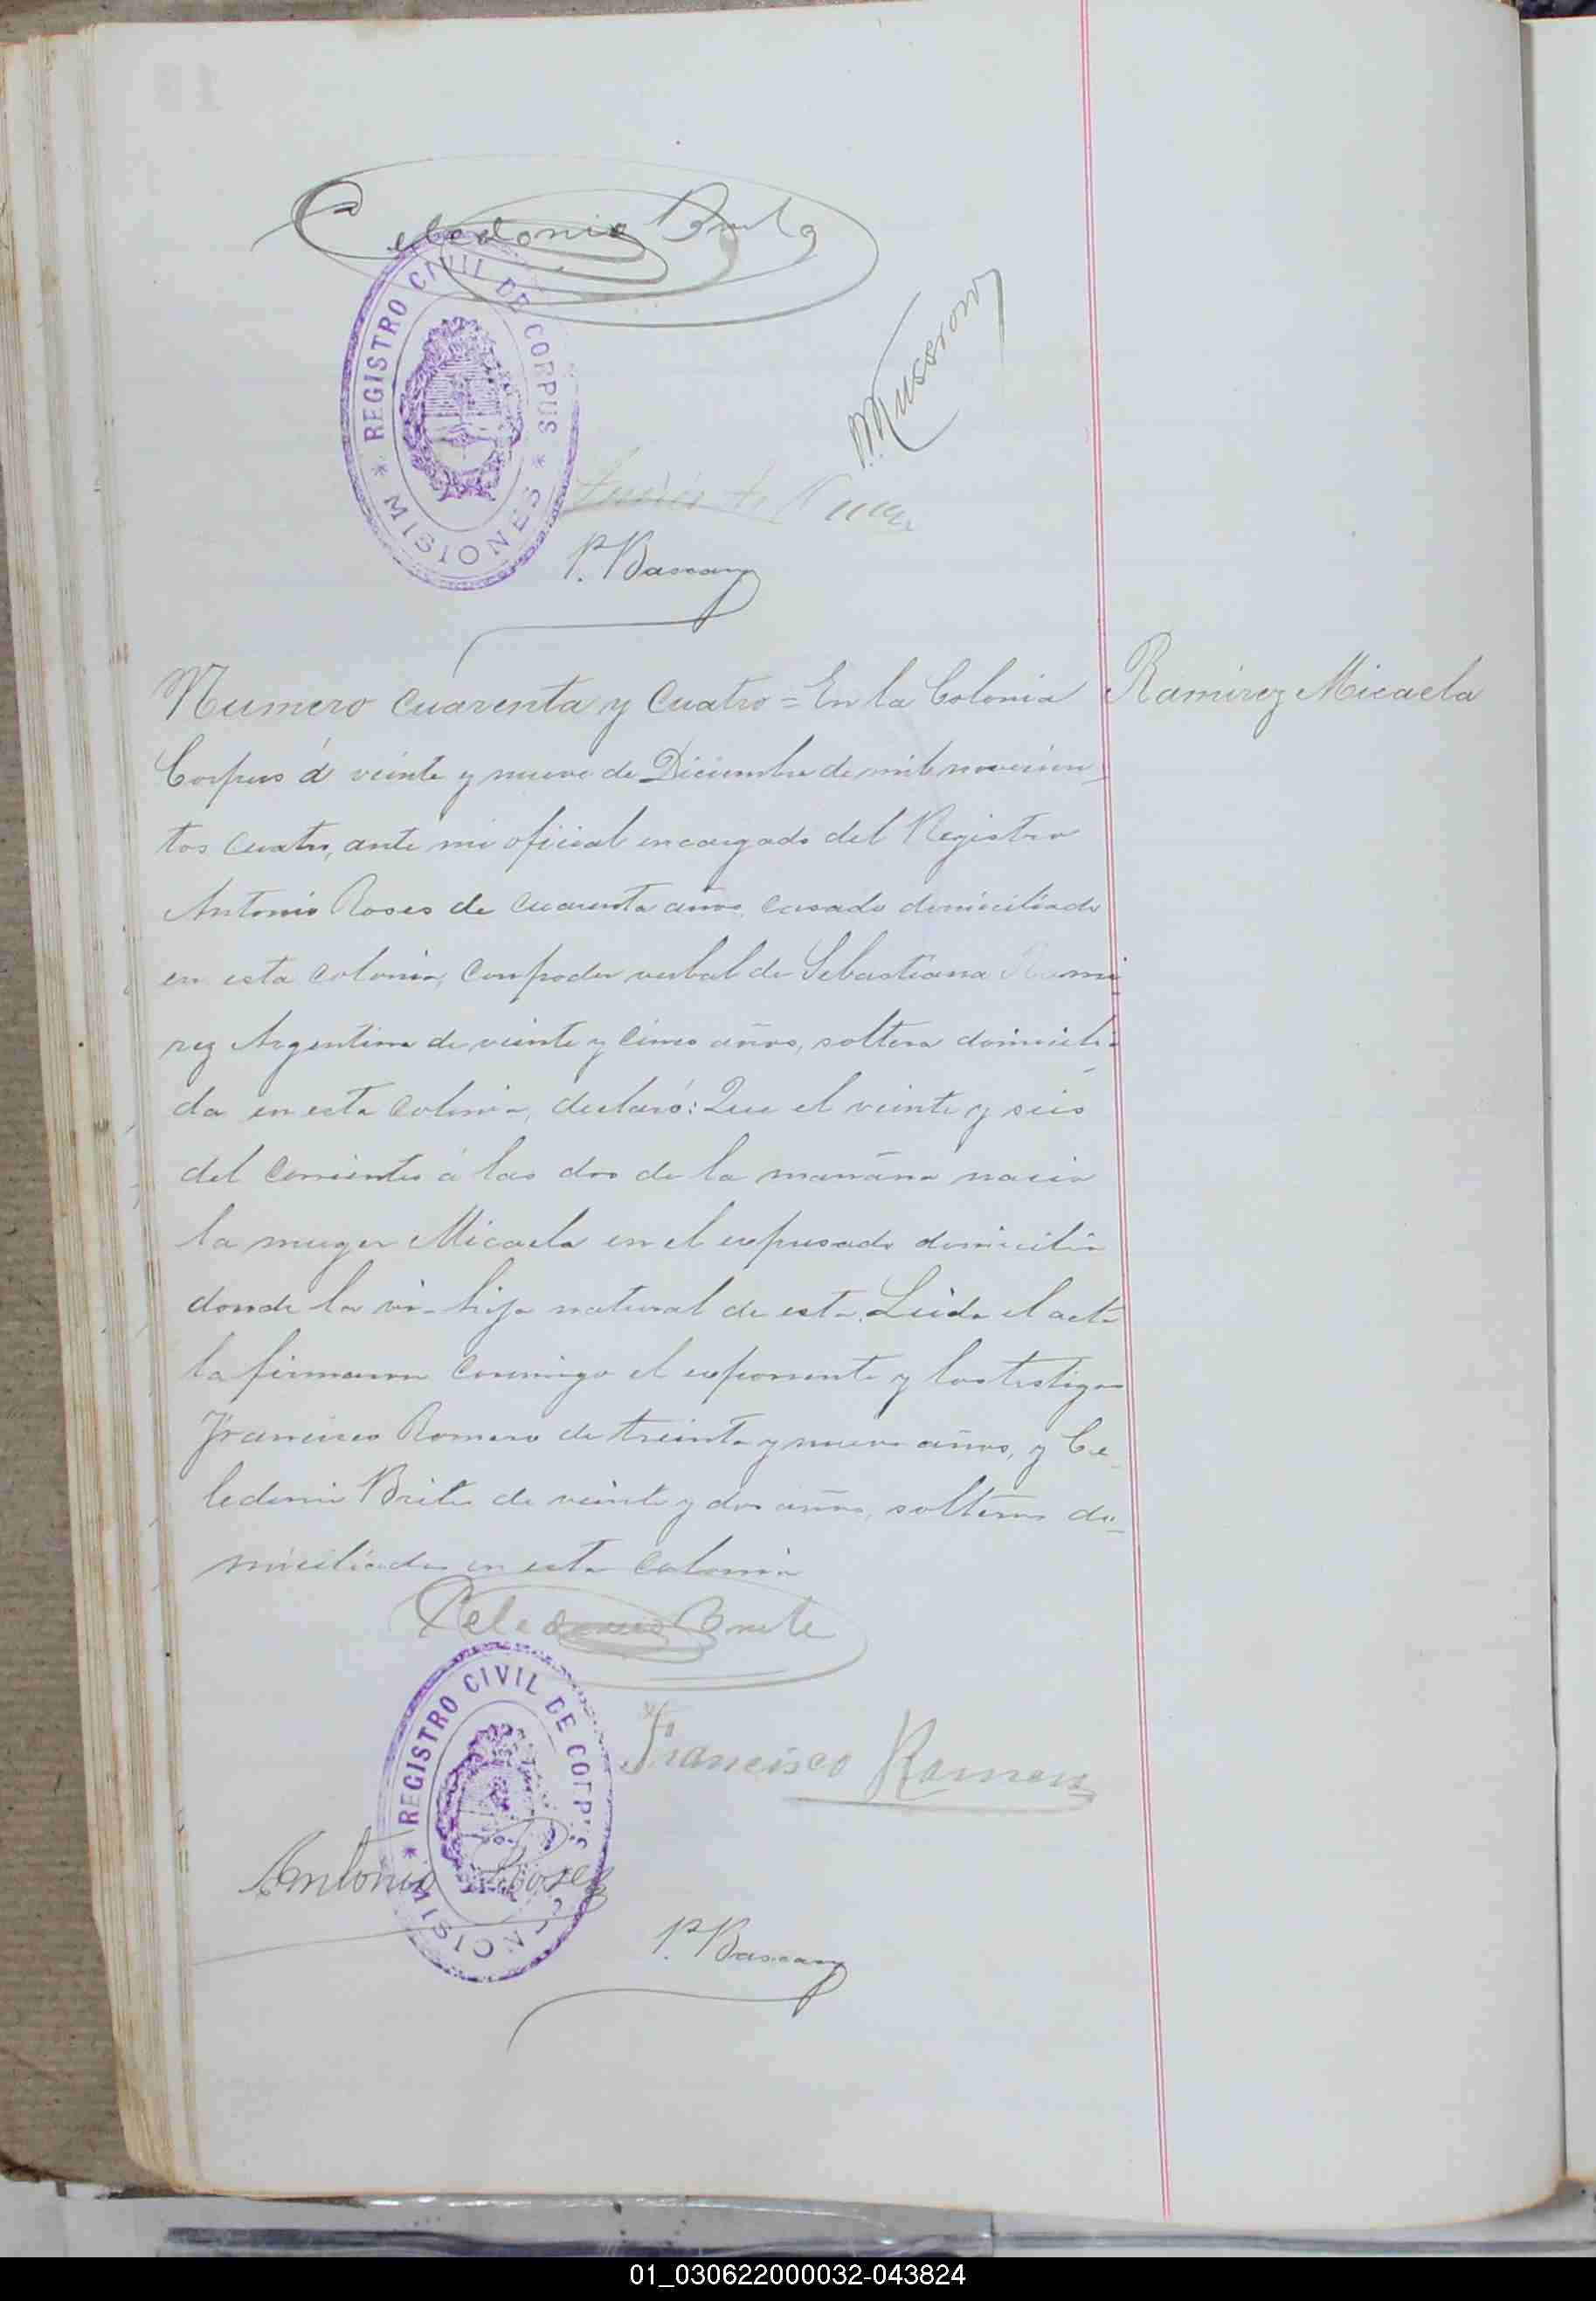 Celedonio Brite
REGISTRO CIVIL DE CORPUS
* MISIONES *
P. Bascary
Numero cuarenta y cuatro = En la Colonia
Ramirez Micaela
Corpus á veinte y nueve de Diciembre de mil novecien-
tos cuatro, ante mi oficial encargado del Registro
Antonio Roses de cuarenta años, casado domiciliado
en esta colonia, con poder verbal de Sebastiana Rami-
rez Argentina de veinte y cinco años, soltera domicilia-
da en esta colonia, declaró: Que el veinte y seis
del corriente á las dos de la mañana nacio
la muger Micaela en el expresado domicilio
donde la vi - hija natural de esta. Leida el acta
la firmaron conmigo el exponente y los testigos
Francisco Romero de treinta y nueve años, y Ce-
ledonio Brite de veinte y dos años, solteros do-
miciliados en esta colonia
Celedonio Brite
REGISTRO CIVIL DE CORPUS
* MISIONES
Francisco Romero
Antonio Roses
P. Bascary
01_030622000032-043824